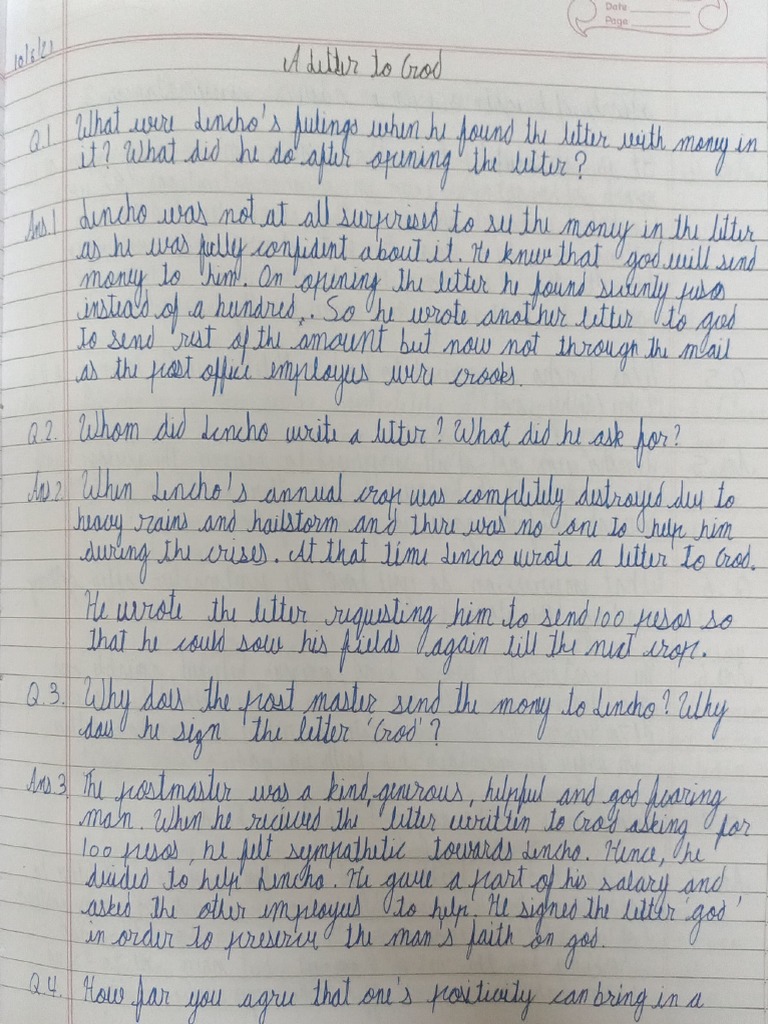 Date
Page
10/6/21
A Letter to God
Q.1 What were Lencho's feelings when he found the letter with money in
it? What did he do after opening the letter?
Ans.1 Lencho was not at all surprised to see the money in the letter
as he was fully confident about it. He knew that god will send
money to him. On opening the letter he found seventy pesos
instead of a hundred,. So he wrote another letter to god
to send rest of the amount but now not through the mail
as the post office employees were crooks.
Q.2. Whom did Lencho write a letter? What did he ask for?
Ans.2 When Lencho's annual crop was completely destroyed due to
heavy rains and hailstorm and there was no one to help him
during the crises. At that time Lencho wrote a letter to God.
He wrote the letter requesting him to send 100 pesos so
that he could sow his fields again till the next crop.
Q.3. Why does the post master send the mony to Lencho? Why
does he sign the letter 'God'?
Ans.3 The postmaster was a kind, generous, helpful and god fearing
man. When he recieved the letter written to God asking for
100 pesos, he felt sympathetic towards Lencho. Hence, he
decided to help Lencho. He gave a part of his salary and
asked the other employees to help. He signed the letter 'god'
in order to preserve the man's faith on god.
Q.4. How far you agree that one's positivity can bring in a